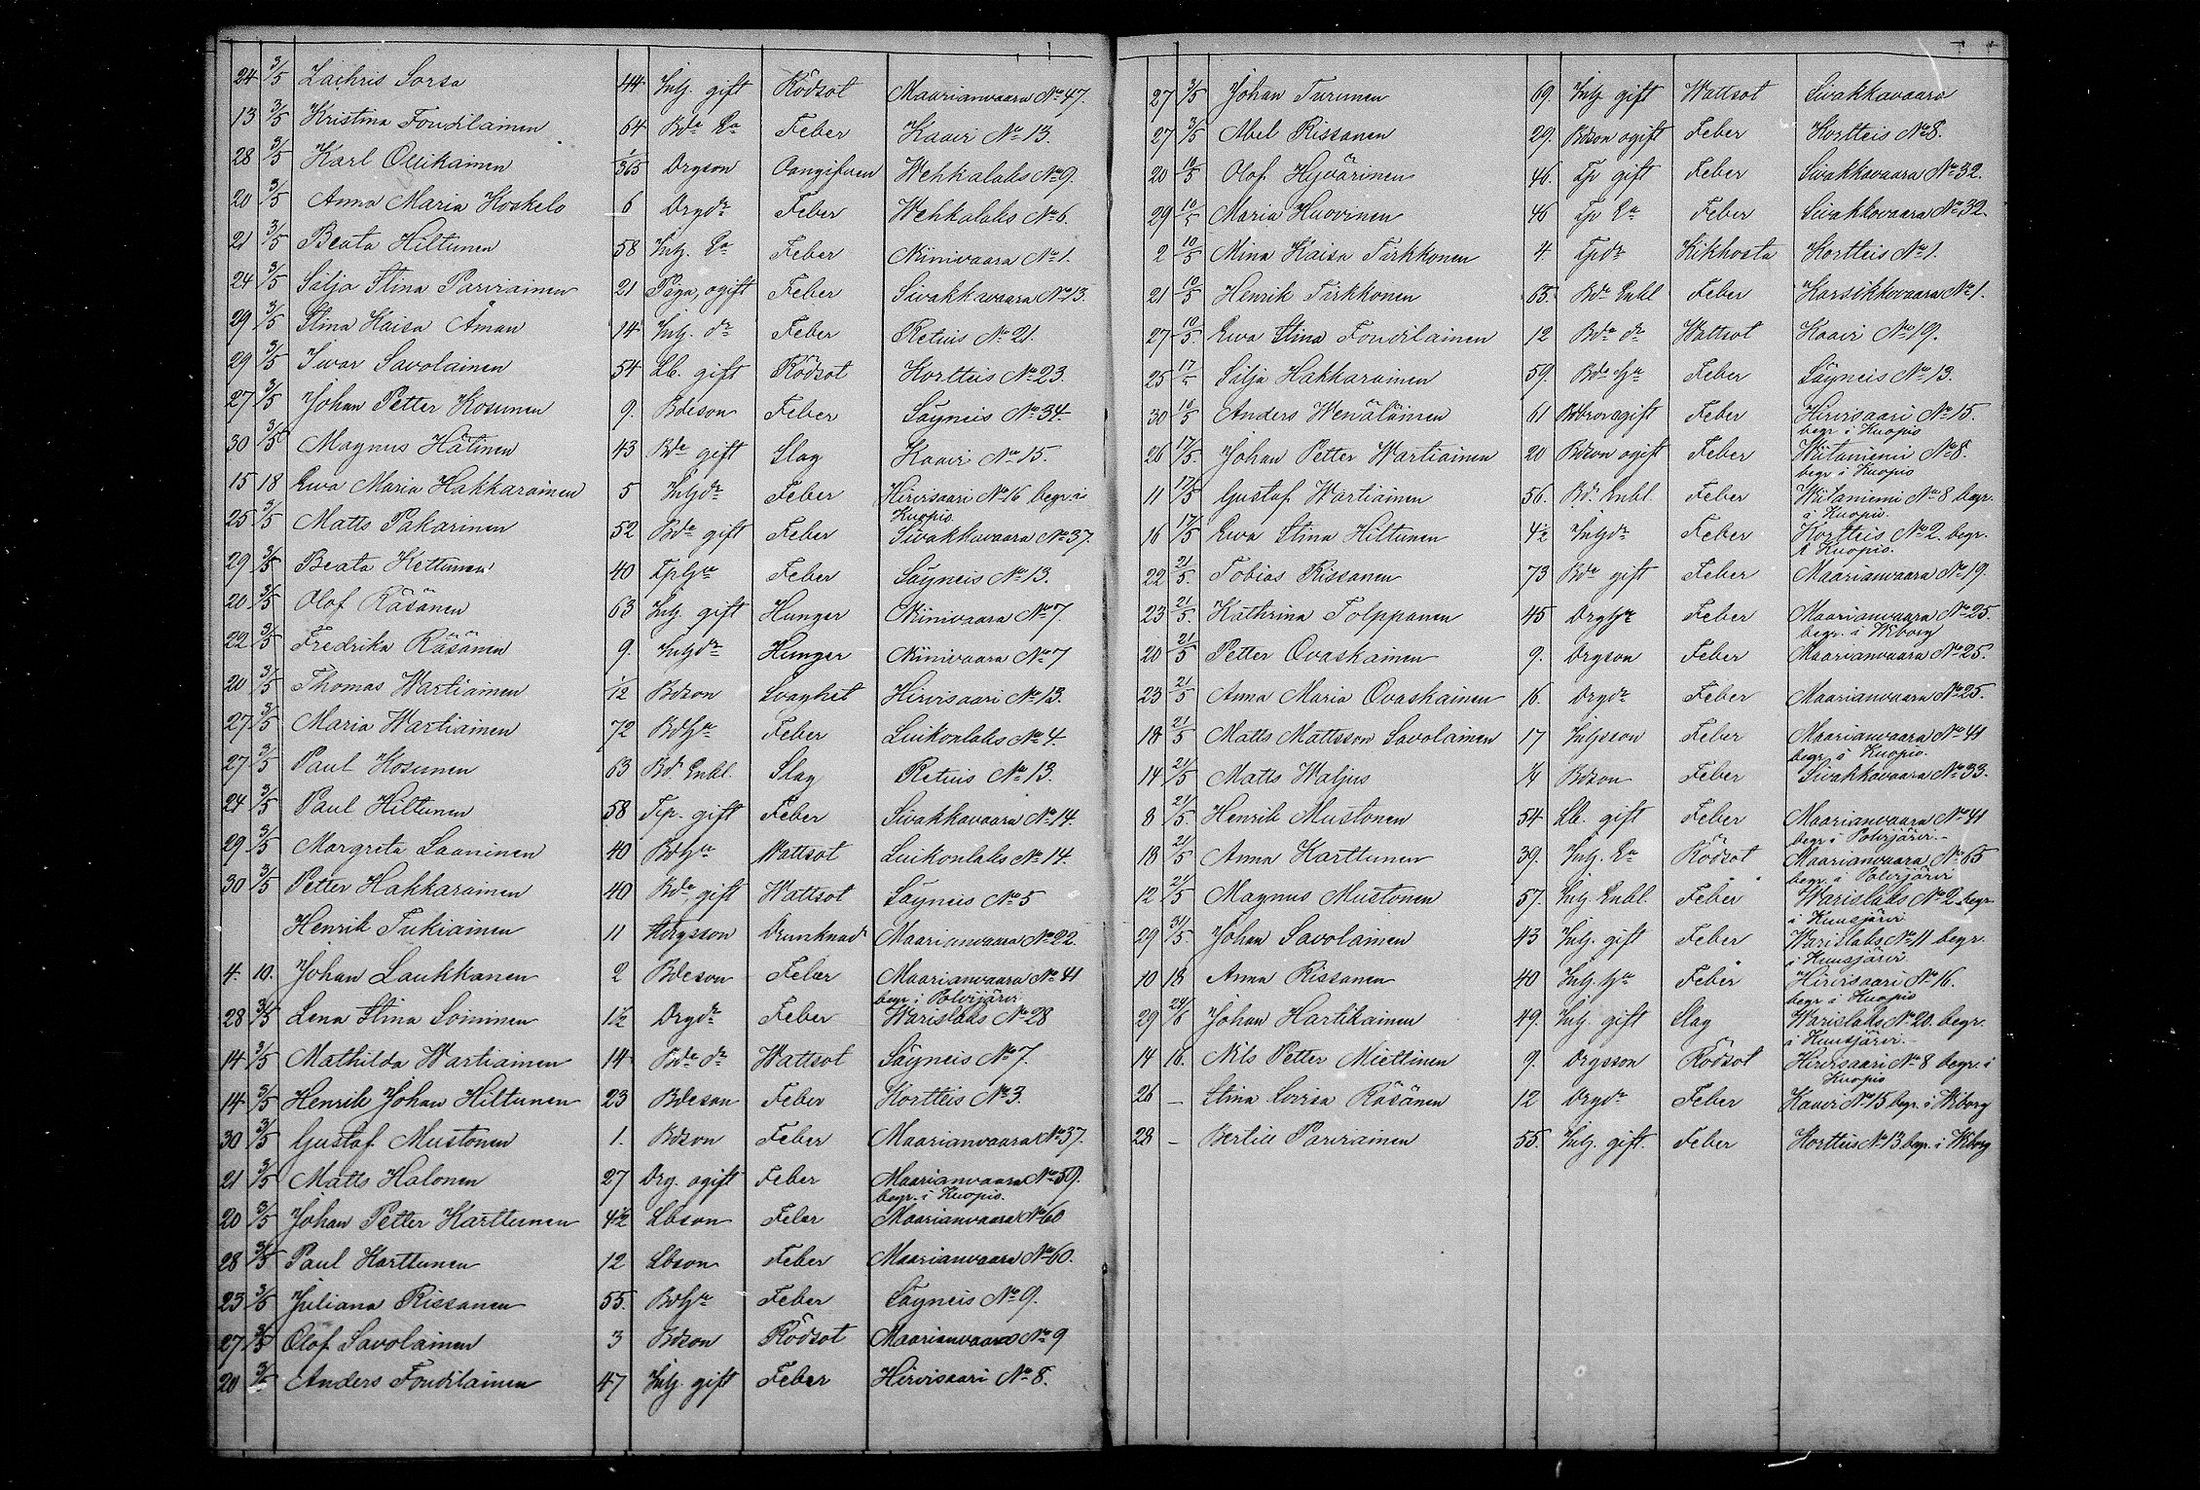 24 3/5 Zachris Sorsa 44 Inh. gift Rödsot Maarianvaara No 47.
13 3/5 Kristina Foudilainen 64 Bde Ea Feber Kaavi No 13.
28 3/5 Karl Ollikainen 1/365 Drgson Oangifven Wehkalaks No 9.
20 3/5 Anna Maria Koskelo 6 Drgdr Feber Wehkalaks No 6.
21 3/5 Beata Hiltunen 58 Inh. Ea Feber Niinivaara No 1.
24 3/5 Silja Stina Parviainen 21 Piga, ogift Feber Sivakkavaara No 13.
29 3/5 Stina Kaisa Åman 14 Inh. dr Feber Retuis No 21.
29 3/5 Ivar Savolainen 54 Lb. gift Rödsot Kortteis No 23.
27 3/5 Johan Petter Kosunen 9. Bdeson Feber Säyneis No 34.
30 3/5 Magnus Hätinen 43 Bde gift Slag Kaavi No 15.
15 18 Ewa Maria Hakkarainen 5 Inhdr Feber Hirvisaari No 16 begr. i
Kuopio.
25 3/5 Matts Pakarinen 52 Bde gift Feber Sivakkavaara No 37.
29 3/5 Beata Kettunen 40 Tphu Feber Säyneis No 13.
20 3/5 Olof Räsänen 63 Inh. gift Hunger Niinivaara No 7.
22 3/5 Fredrika Räsänen 9. Inhdr Hunger Niinivaara No 7
20 3/5 Thomas Wartiainen 1/12 Bdson Svaghet Hirvisaari No 13.
27 3/5 Maria Wartiainen 72 Bdhu Feber Luikonlaks No 4.
27 3/5 Paul Kosunen 63 Bd Enkl. Slag Retuis No 13.
24 3/5 Paul Hiltunen 58 Tp. gift Feber Sivakkavaara No 14.
29 3/5 Margreta Laaninen 40 Bdhu Wattsot Luikonlaks No 14.
30 3/5 Petter Hakkarainen 40 Bde gift Wattsot Säyneis No 5
Henrik Tukiainen 11 Drgsson Drunknad Maarianvaara No 22.
4. 10. Johan Laukkanen 2 Bdeson Feber Maarianvaara No 41
begr. i Polvijärvi
28 3/5 Lena Stina Soininen 1 1/2 Drgdr Feber Warislaks No 28
14 3/5 Mathilda Wartiainen 14 Bde dr Wattsot Säyneis No 7.
14 3/5 Henrik Johan Hiltunen 23 Bdeson Feber Kortteis No 3.
30 3/5 Gustaf Mustonen 1. Bdson Feber Maarianvaara No 37.
21 3/5 Matts Halonen 27 Drg. ogift Feber Maarianvaara No 59.
begr. i Kuopio.
20 3/5 Johan Petter Karttunen 4 1/2 Lbson Feber Maarianvaara No 60
28 3/5 Paul Karttunen 12 Lbson Feber Maarianvaara No 60.
23 3/5 Juliana Rissanen 55. Bdhu Feber Säyneis No 9.
27 3/5 Olof Savolainen 3 Bdson Rödsot Maarianvaara No 9
20 3/5 Anders Foudilainen 47 Inh. gift Feber Hirvisaari No 8.
27 3/5 Johan Turunen 69. Inh gift Wattsot Sivakkavaara
27 3/5 Abel Rissanen 29. Bdson ogift Feber Kortteis No 8.
20 10/5 Olof Hyvärinen 46. Tp gift Feber Sivakkavaara No 32.
29 10/5 Maria Huovinen 46 Tp Ea Feber Sivakkavaara No 32.
2 10/5 Mina Kaisa Tirkkonen 4 Tpdr Kikhosta Kortteis No 1.
21 10/5 Henrik Tirkkonen 65. Bde Enkl Feber Karsikkovaara No 1.
27 10/5. Ewa Stina Foudilainen 12 Bde dr Wattsot Kaavi No 19.
25 17/5 Silja Hakkarainen 59. Bde hu Feber Säyneis No 13.
30 10/5 Anders Wenäläinen 61 Bdbror ogift Feber Hirvisaari No 15.
begr i Kuopio
26 17/5. Johan Petter Wartiainen 20 Bdson ogift Feber Wiitaniemi No 8.
begr i Kuopio
11 17/5 Gustaf Wartiainen 56. Bde Enkl. Feber Witaniemi No 8 begr.
i Kuopio.
16 17/5 Ewa Stina Hiltunen 4 1/2 Inhdr Feber Kortteis No 2. begr.
i Kuopio.
22 21/5. Tobias Rissanen 73 Bde gift Feber Maarianvaara No 19.
23 21/5. Kathrina Tolppanen 45 Drghu Feber Maarianvaara No 25.
begr. i Wiborg
20 21/5 Petter Ovaskainen 9. Drgson Feber Maarianvaara No 25.
23 21/5 Anna Maria Ovaskainen 16. Drgdr Feber Maarianvaara No 25.
18 21/5 Matts Mattsson Savolainen 17 Inhsson Feber Maarianvaara No 41
begr. i Kuopio.
14 21/5 Matts Waljus 1/4 Bdson Feber Sivakkavaara No 33.
8 21/5. Henrik Mustonen 54 Lb. gift Feber Maarianvaara No 41
begr i Polvijärvi.
18 21/5 Anna Karttunen 39. Inh. Ea Rödsot Maarianvaara No 65
begr. i Polvijärvi
12 21/5 Magnus Mustonen 57. Inh. Enkl. Feber Warislaks No 2. begr
i Kuusjärvi
29 31/5. Johan Savolainen 43 Inh. gift Feber Warislaks No 11 begr.
i Kuusjärvi.
10 18 Anna Rissanen 40 Inh. hu Feber Hirvisaari No 16.
begr i Kuopio
29 24/6 Johan Hartikainen 49. Inh. gift Slag Warislaks No 20. begr.
i Kuusjärvi.
14 16. Nils Petter Miettinen 9. Drgsson Rödsot Hirvisaari No 8 begr. i
Kuopio
26 — Stina Lovisa Räsänen 12 Drgdr Feber Kaavi No 15 begr. i Wiborg
28 — Bertill Parviainen 55. Inh. gift. Feber Kortteis No 13. begr. i Wiborg